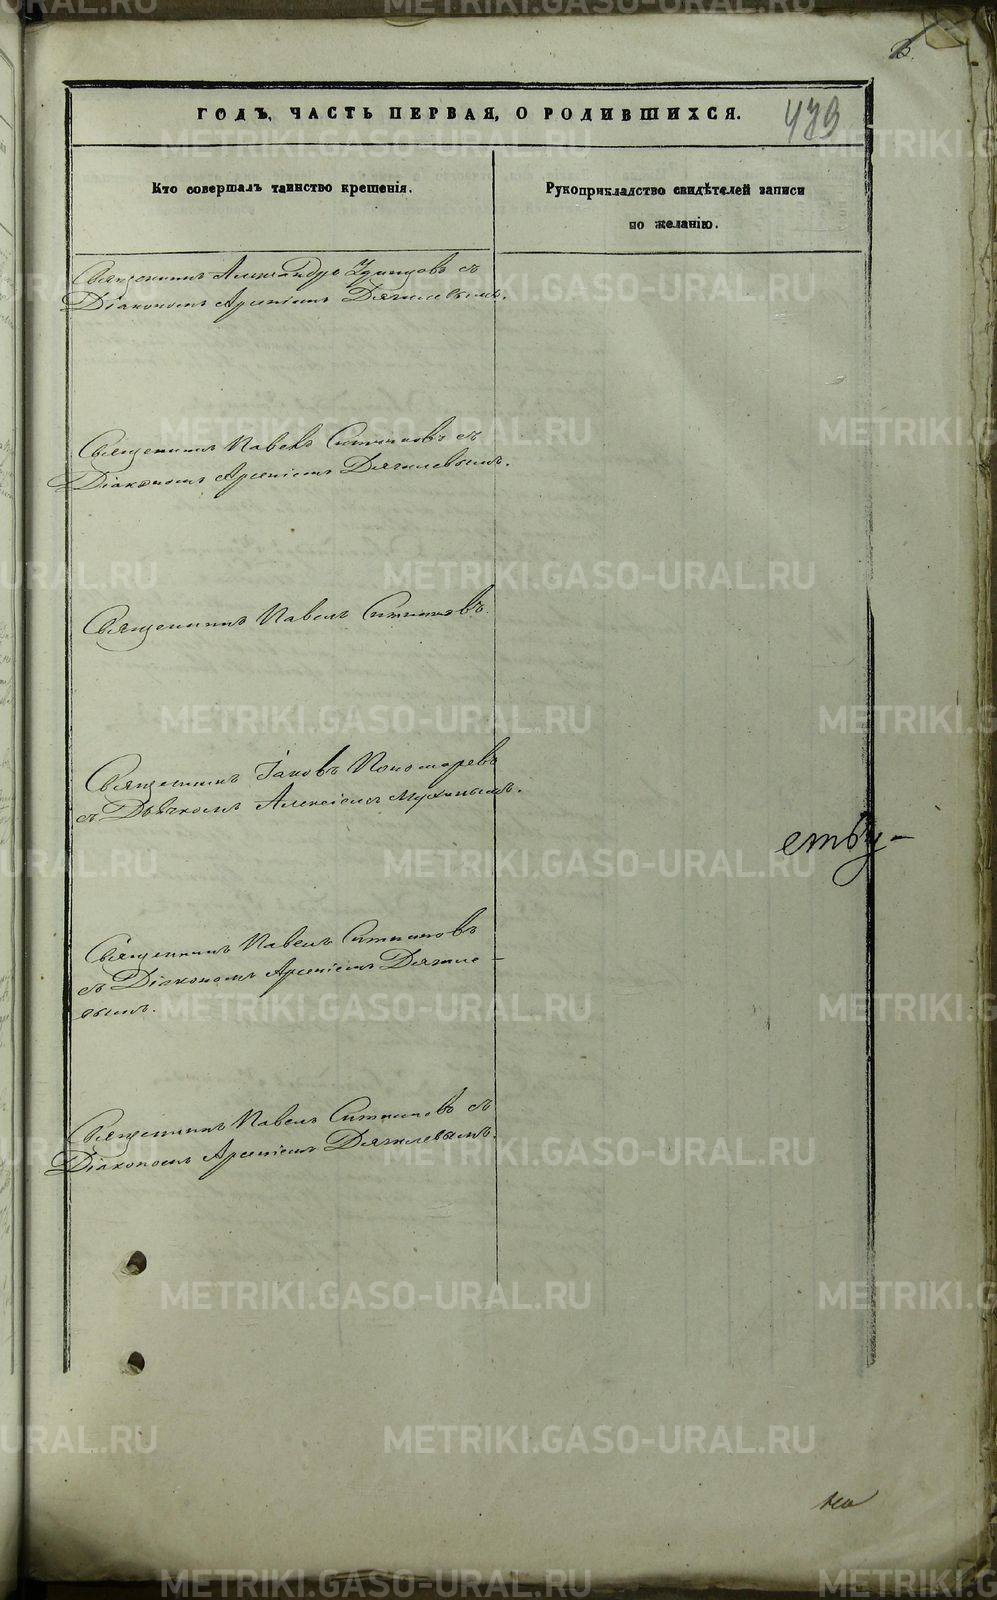 439
ГОДЪ, ЧАСТЬ ПЕРВАЯ, О РОДИВШИХСЯ.
Кто совершалъ таинство крещенія.
Рукоприкладство свидѣтелей записи
по желанію.
Священникъ Александръ Удинцовъ съ
Діакономъ Арсеніемъ Дягилевымъ.
Священникъ Павелъ Ситниковъ съ
Діакономъ Арсеніемъ Дягилевымъ.
Священникъ Павелъ Ситниковъ.
Священникъ Іаковъ Пономаревъ
съ Дьячкомъ Алексіемъ Мухинымъ.
ству-
Священникъ Павелъ Ситниковъ
съ Діакономъ Арсеніемъ Дягиле-
вымъ.
Священникъ Павелъ Ситниковъ съ
Діакономъ Арсеніемъ Дягилевымъ.
на
METRIKI.GASO-URAL.RU